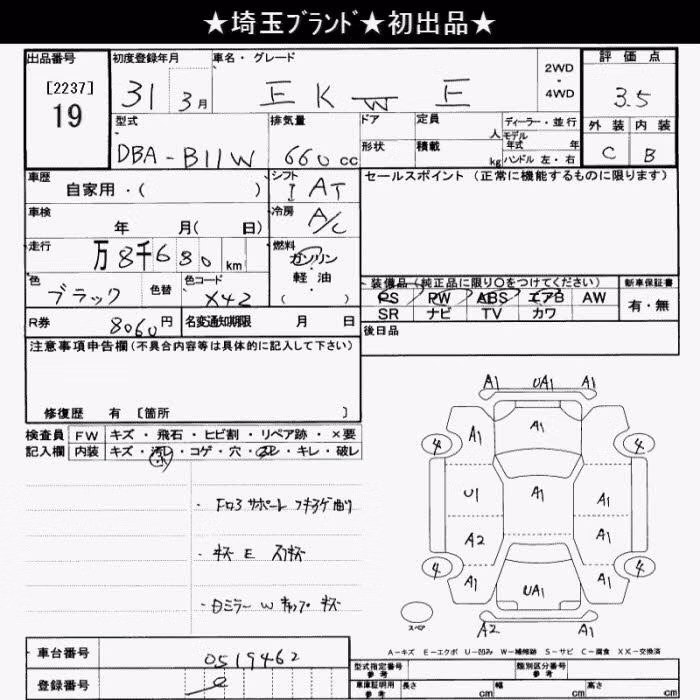 ★埼玉ﾌﾞﾗﾝﾄﾞ★初出品★
出品番号
[2237]
19
初度登録年月
31 3月
車名・グレード
EK W E
2WD
・
4WD
評価点
3.5
外装 内装
C B
型式
DBA-B11W
排気量
660 cc
ドア
形状
定員
人
積載
kg
ディーラー・並行
モデル
年式 年
ハンドル 左・右
車歴
自家用・( )
シフト
I AT
セールスポイント（正常に機能するものに限ります）
車検
年 月( 日)
冷房
A/C
走行
万8千680 km
燃料
ガソリン・
軽油
( )
色
ブラック
色替
色コード
X42
装備品（純正品に限り〇をつけてください）
PS PW ABS エアB AW
SR ナビ TV カワ
新車保証書
有・無
R券
8060円
名変通知期限 月 日
後日品
注意事項申告欄(不具合内容等は具体的に記入して下さい)
修復歴 有 〔箇所 〕
検査員
記入欄
FW キズ・飛石・ヒビ割・リペア跡・×要
内装 キズ・汚レ・コゲ・穴・スレ・キレ・破レ
・キズ E スリキズ
・日ミラー W キャップ キズ
A1 UA1 A1
A1
4 A1 4
U1 A1 A1
A2 A1
4 A1 UA1 A1 4
A2 A1
スペア
A-キズ E-エクボ U-凹み W-補修跡 S-サビ C-腐食 XX-交換済
車台番号
0519462
登録番号
型式指定番号
参考
類別区分番号
参考
車庫証明用
参考
長さ cm 幅 cm 高さ cm